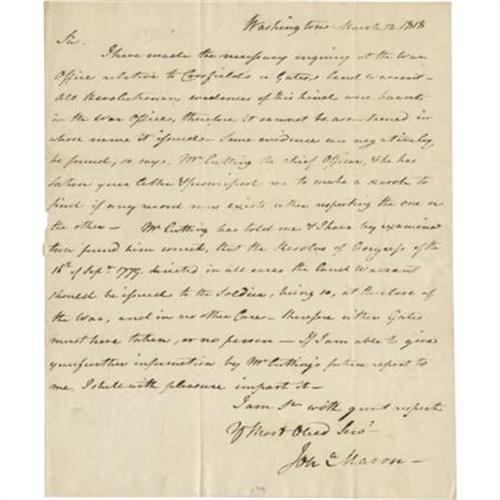 Washington March 12 1818
Sir.
I have made the necessary enquiry at the War
Office relative to Crosfield's or Gates, Land Warrant –
All Revolutionary evidences of this kind were burnt
in the War Office, therefore it cannot be ascertained in
whose name it issued – Some evidence can negatively
be found, so says, Mr Cutting the chief Officer, & he has
taken your letter & promised me to make a search to
find if any record now exists either respecting the one or
the other – Mr Cutting has told me & I have by examina
tion found him correct, that the Resolve of Congress of the
15th of Sept. 1779, directed in all cases the Land Warrant
should be issued to the Soldier, being so, at the close of
the War, and in no other Case – therefore either Gates
must have taken, or no person – If I am able to give
you further information by Mr Cutting's future report to
me, I shall with pleasure impart it –
I am Sr with great respect
Yr Most Obed Servt
Jon a Mason –